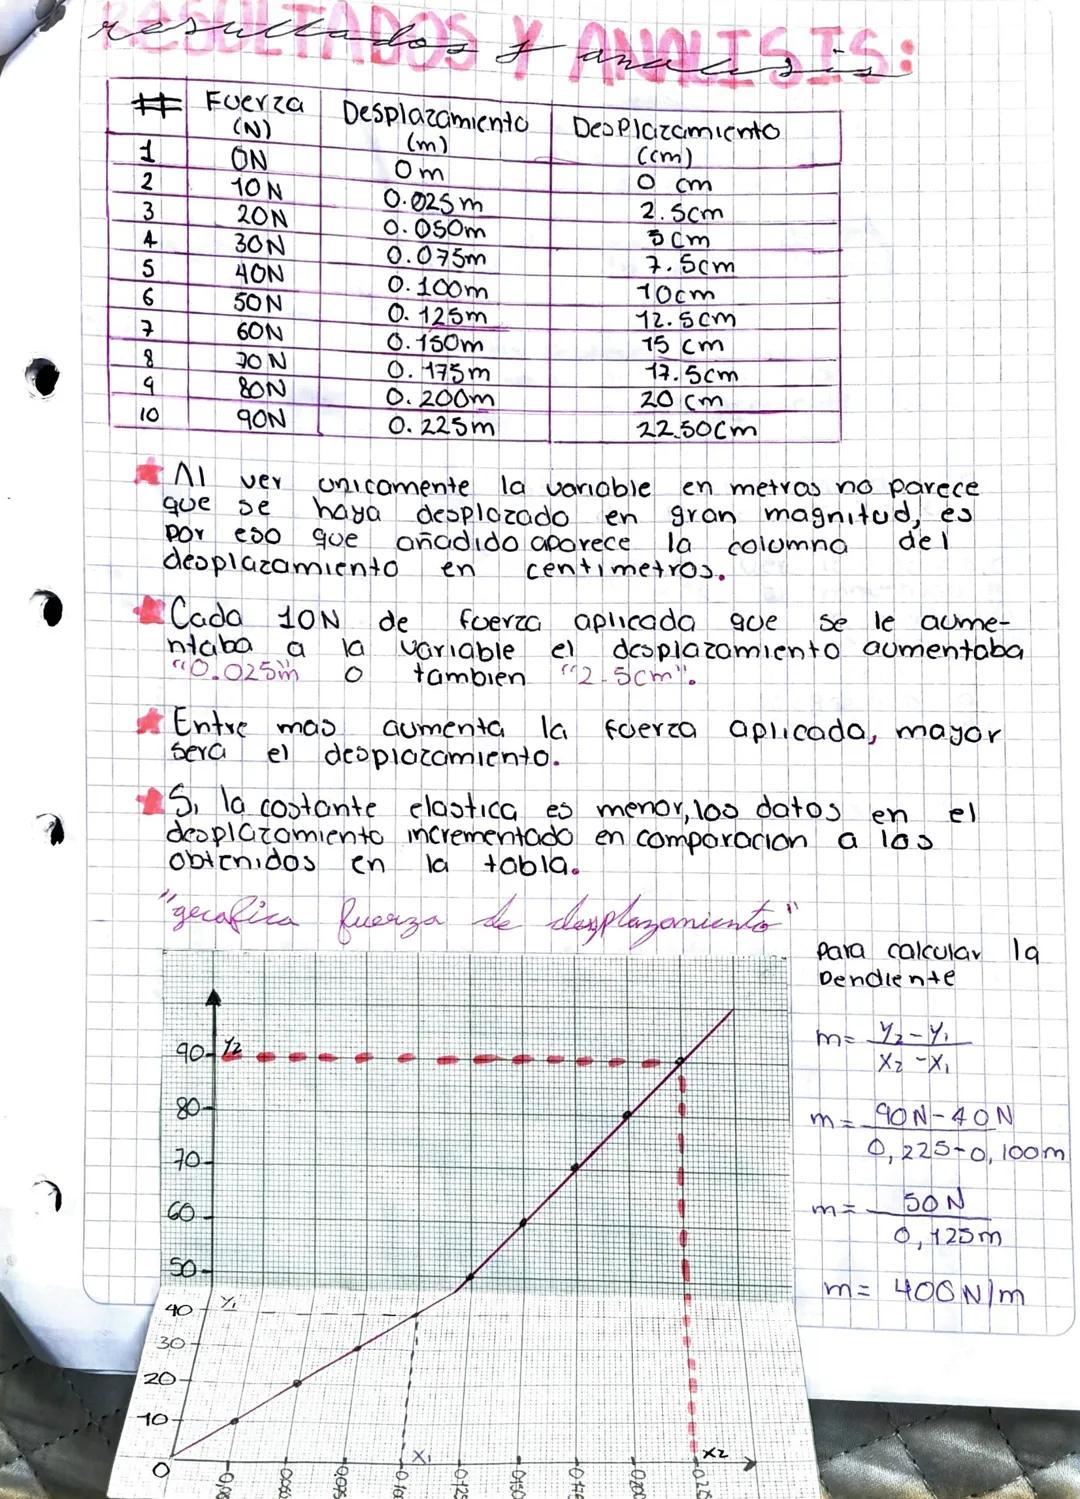 RESULTADOS Y ANALISIS:
resultados y analisis
# Fuerza (N) Desplazamiento (m) Desplazamiento (cm)
1 0N 0m 0 cm
2 10N 0.025m 2.5cm
3 20N 0.050m 5cm
4 30N 0.075m 7.5cm
5 40N 0.100m 10cm
6 50N 0.125m 12.5cm
7 60N 0.150m 15 cm
8 70N 0.175m 17.5cm
9 80N 0.200m 20 cm
10 90N 0.225m 22.50cm
Al ver unicamente la variable en metros no parece
que se haya desplazado en gran magnitud, es
por eso que añadido aparece la columna del
desplazamiento en centimetros.
Cada 10N de fuerza aplicada que se le aume-
ntaba a la variable el desplazamiento aumentaba
"0.025m" o tambien "2.5cm".
Entre mas aumenta la fuerza aplicada, mayor
sera el desplazamiento.
Si la costante elastica es menor, los datos en el
desplazamiento incrementado en comparacion a los
obtenidos en la tabla.
"gecafica fuerza de desplazamiento"
para calcular la
pendiente
m= Y2-Y1
X2-X1
m= 90N-40N
0,225-0,100m
m= 50N
0,125m
m= 400N/m
90 Y2
80
70
60
50
40 Y1
30
20
10
X1 X2
0 0.050 0.125 0.150 0.200